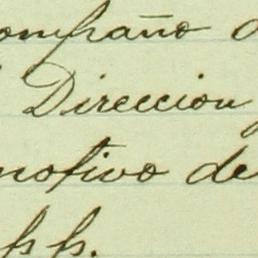 ompaño
Direccion
motivo de